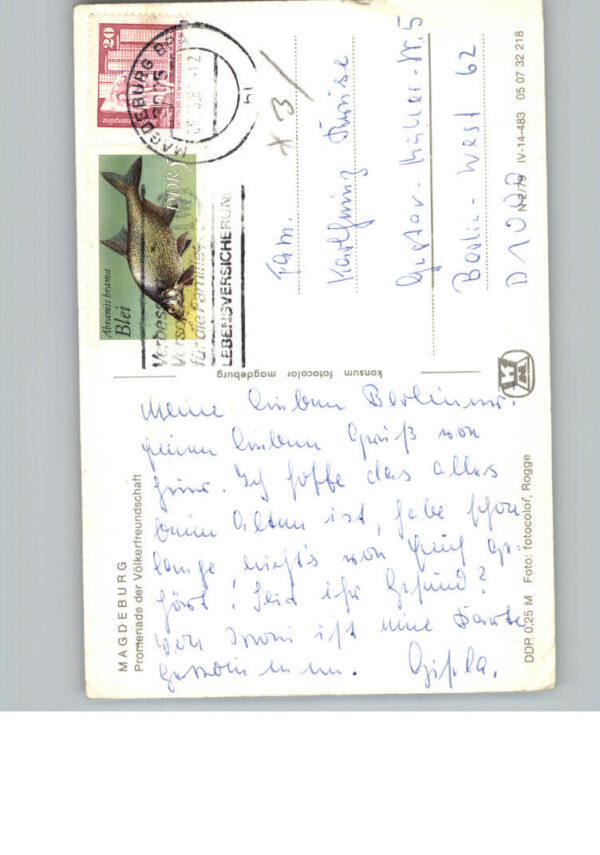 MAGDEBURG
Promenade der Völkerfreundschaft
Meine lieben Berliner.
einen lieben Gruß von
hier. Ich hoffe das alles
beim Alten ist, habe schon
lange nichts von Euch ge-
hört! Seid ihr Gesund?
von Mroni ist eine Karte
gekommen. Gisela.
DDR 0,25 M Foto: fotocolor, Rogge
konsum fotocolor magdeburg
20
MAGDEBURG
DDR 5
Abramis brama
Blei
für die Familie
LEBENSVERSICHERUNG
Fam.
Karlheinz
Gustav-Müller-Str. 5
Berlin-West 62
D 1000
N 2/79 IV-14-483 05 07 32 218